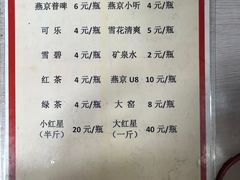 燕京普啤 6 元/瓶 燕京小听 4 元/瓶
可乐 4 元/瓶 雪花清爽 5 元/瓶
雪碧 4 元/瓶 矿泉水 2 元/瓶
红茶 4 元/瓶 燕京 U8 10 元/瓶
绿茶 4 元/瓶 大窑 8 元/瓶
小红星 20 元/瓶 大红星 40 元/瓶
（半斤） （一斤）